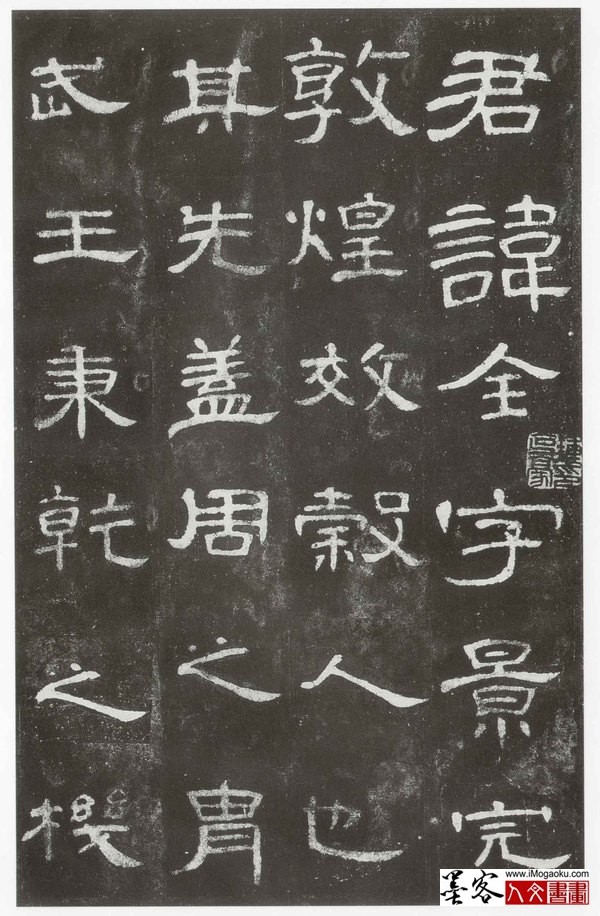 君諱全字景完
敦煌效穀人也
其先蓋周之胄
武王秉乾之機
墨客
www.iMogaoku.com
人文書畫